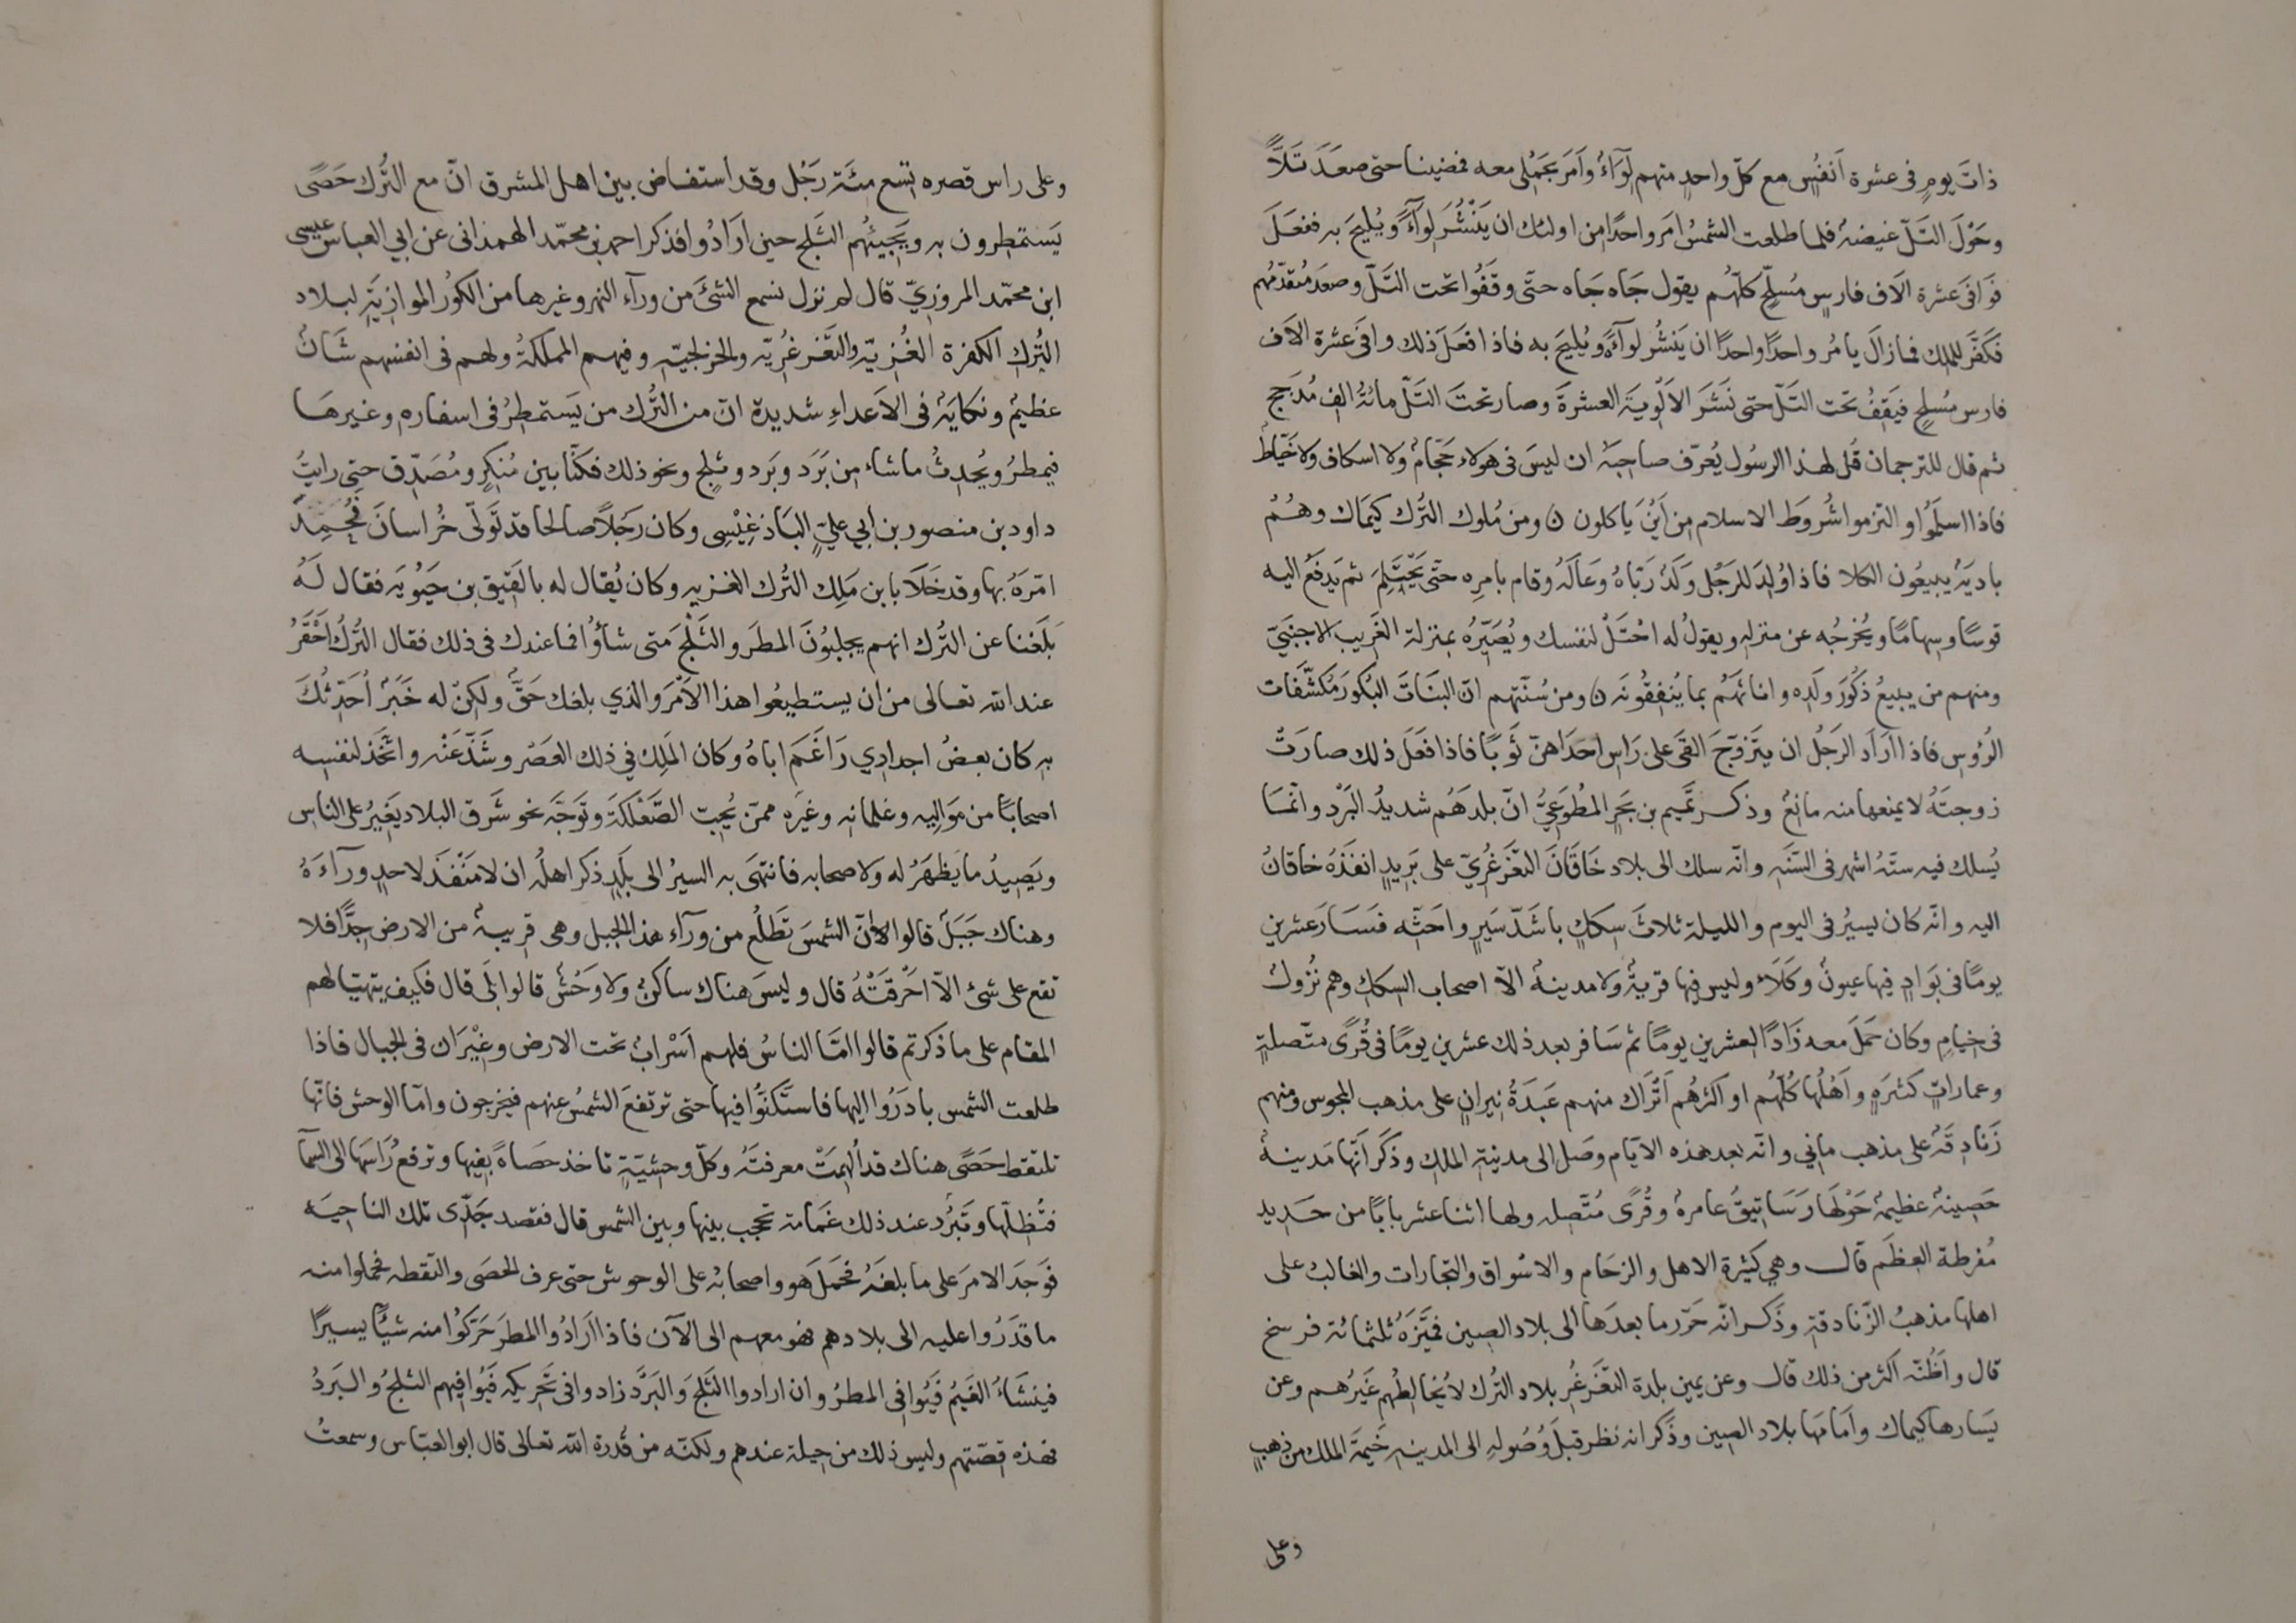 ذاتَ يومٍ فى عشرة اَنفُسٍ مع كلّ واحدٍ منهم لِوَآءُ وَاَمَرَ بِحَملى معه فمضينا حتى صعَدَ تَلاًّ
وحَوْلَ التَلّ غيضةُ فلما طلعت الشمسُ امَر واحدًا من اولئك ان يَنْشُرَ لِوآءَهُ ويُليحَ به ففعَلَ
فَوَافَى عشرة الاَف فارسٍ مُسَلَّحٍ كلّهُم يقول جَاه جَاه حتّى وقَفُوا تحت التَلّ وصعَد مُتقدّمُهم
فكفَّر للملك فما زالَ يامُر واحدًا واحدًا ان يَنشُر لِوآءَهُ ويُليحَ به فاذا فعَلَ ذلك وافَى عشرة الاَف
فارس مُسلحٍ فيَقِفُ تحت التَلّ حتى نَشَرَ الاَلْويَةَ العشرةَ وصار تحتَ التَلّ مائةُ الف مُدَجج
ثم قال للترجمان قُل لهذا الرسُول يُعرّف صاحِبَهُ ان ليسَ فى هولاء حَجّامُ ولا اسكاف ولا خَيّاطُ
فاذا اسلَمُوا والتزموا شُروَط الاسلام مِن اَيْنَ يَاكلون ن ومن مُلوك التُرك كيمَاك وهُمُ
باديَةُ يبيعُون الكلا فاذا وُلِدَ للرَجُل وَلَدُ رَبّاهُ وعَالَهُ وقام بامرِه حتّى يَحْتَلِمَ ثم يَدفَعُ اليه
قوسًا وسِهامًا ويُخرجُه عن منزله ويقولُ له احْتَلْ لنفسك ويُصَيّرُهُ بمنزلة الغَريب الاجنَبيّ
ومنهم من يبيعُ ذكُورَ ولَدِه واناثَهُم بما يُنفِقُونَه ن ومن سُنّتهم انّ البنَاتَ البُكورَ مُكشّفَات
الرُؤسِ فاذا ارَاَد الرَجُل ان يتَزوّجَ القَى على رَاسِ احدَاهنّ ثَوبًا فاذا فعَلَ ذلك صارَتْ
زوجتَهُ لا يمنعها منه مانِعُ وذكر تميم بن بَحَرٍ المطَوّعيُّ انّ بلدَهُم شديدُ البَرْد وانّمَا
يُسلك فيه ستَةُ اشهر فى السَنَه وانّه سلك الى بلاد خَاقَانَ التغَزغُريّ على بَريدٍ انفَذَهُ خاقانُ
اليه وانّه كان يسيرُ فى اليوم والليلة ثلاثَ سِكَكٍ باشَدّ سَيرٍ واحَثّه فسَارَ عشرين
يومًا فى بَوَادٍ فيها عيونُ وكَلَاءُ وليس فيها قريةُ ولا مدينةُ الاّ اصحاب السِكَك وهم نُزولُ
فى خيامٍ وكان حمَلَ معه زَادًا لعشرين يومًا ثم سَافر بعد ذلك عشرين يومًا فى قُرًى متّصلةٍ
وعماراتٍ كثيرَةٍ واَهْلُها كُلّهُم او اكثرُهُم اَتْراك منهم عَبَدَةُ نِيرانٍ على مذهب المجوس ومنهم
زَنادِقَةُ على مذهب ماني وانّه بعد هذه الايّام وصَل الى مدينة الملك وذكَرَ اَنّها مَدينةُ
حَصِينةُ عظيمةُ حَوْلَها رَسَاتِيقُ عامرةُ وقُرًى مُتّصِلة ولها اثنا عشر بابًا من حَديد
مُفرطة العِظَم قال وهي كثيرة الاهل والزحَام والاسْواق والتجارات والغالبُ على
اهلها مذهبُ الزّنادقة وذَكر انّه حَزر ما بعدَها الى بلاد الصين ثلثمائة فرسخ
قال واَظُنّه اكثر من ذلك قال وعن يمين بلدة التغَزغُر بلاد التُرك لا يُخالطُهم غَيرُهُم وعن
يَسَارها كيماك واَمَامَها بلاد الصين وذَكر انه نظر قبلَ وُصُوله الى المدينه خَيمَةَ الملك من ذهبٍ
وعلى
وعلى راس قصره تِسع مئة رَجُل وقد استفاض بين اهل المشرق انّ مع التُرك حَصًى
يَستمطرون به ويَجيئُهم الثَلج حين ارَادُوا فذكر احمد بن محمّد الهمذانى عن ابي العباس عيسى
ابن محمّد المروزيّ قال لم نزل نسمع الشئَ من ورآء النهر وغيرها من الكُور الموازِيَة لبلاد
التُركِ الكفرة الغُزيّه والتغَزغُريّه والخزلجيّه وفيهم المملكةُ ولهم فى انفسهم شَانُ
عظيمُ ونِكايَةُ فى الاَعداءِ شديدةُ انّ من التُرك من يَستمطِرُ فى اسفاره وغيرهَا
فيمطرُ ويُحِدثُ ما شاء من بَرَد وبَرد وثلجٍ ونحو ذلك فكنّا بين مُنكِرٍ ومُصَدّق حتى رايتُ
داود بن منصور بن ابي عليّ البَاذغِيْسِى وكان رَجُلاً صالحا قد تَولّى خُراسانَ فحُمِدَ
امْرَهُ بها وقد خَلَا بابن مَلِك التُرك الغزيه وكان يُقال له بالقيق بن حَيُويَه فقال لَهُ
بَلَغنا عن التُرك انهم يجلبُونَ المطرَ والثَلْجَ متى شآؤُا فما عندك فى ذلك فقال التُركُ اَحْقَرُ
عند الله تعالى من ان يستطيعُوا هذا الاَمْرَ والذي بلغك حَقُّ ولكِنْ له خَبَرُ اُحَدّثُكَ
به كان بعضُ اجدادِي رَاغَمَ اباهُ وكان المَلِك في ذلك العَصْر وشَذّ عَنْه واتّخَذَ لنفسه
اصحابًا من مَوَاليه وغلمانه وغيَره ممّن يُحِبّ الصّعْلكةَ وتَوَجّه نحو شَرق البلاد يَغِيرُ على الناس
ويَصِيدُ ما يَظهَرُ له ولاصحابه فانتهَى به السيرُ الى بلَدٍ ذكر اهلُه ان لا مَنْفذ لاحدٍ ورآءَهُ
وهناك جَبَلُ قالوا لانّ الشمسَ تَطلُع من ورآء هذا الجبل وهى قريبةُ من الارض جِدًّا فلا
تقع على شئٍ الاّ احْرَقَتْهُ قال وليسَ هناك ساكنُ ولا وَحْشُ قالوا بلَى قال فكيف يتهيّا لهم
المقام على ما ذكرتم قالوا امّا الناسُ فلهم اَسْرابُ تحت الارض وغِيْرَان فى الجبال فاذا
طلعت الشمس بادَرُوا اليها فاستَكنّوا فيها حتى ترتفعَ الشمسُ عنهم فيخرجون وامّا الوحش فانّها
تلتقط حَصًى هناك قد اُلهِمَتْ معرفتَهُ وكلّ وحشيّةٍ تاخذ حصَاةً بفِيها وترفعُ رَاسَها الى السّما
فتُظلّها وتَبرُد عند ذلك غَمامة تحجب بينها وبين الشمس قال فقصد جَدّى تلك الناحيَه
فوَجَدَ الامرَ على ما بلغَهُ فحَمَلَ هو واصحابُه على الوحوش حتى عرف الحصَى والتقطه فحملوا منه
ما قدَرُوا عليه الى بلادهم فهو معهم الى الآن فاذا ارَادُوا المطرَ حَرّكوُا منه شيئًا يسيرًا
فينشَاءُ الغَيمُ فَيُوافى المطرُ وان ارادوا الثَلجَ وَالبَرَدَ زادوا فى تَحريكه فَيُوافيهم الثلجُ والبَردُ
فهذه قصّتهم وليس ذلك من حيلة عندهم ولكنّه من قُدرة الله تعالى قال ابو العبّاس وسمعتُ